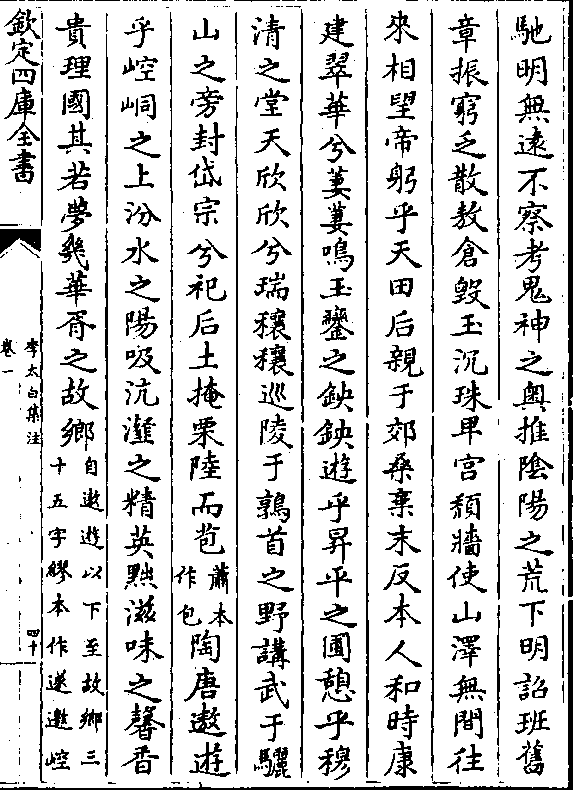 馳明無遠不察考鬼神之奥推陰陽之荒下明詔班舊
章振窮乏散敖倉毀玉沉珠卑宮頹牆使山澤無間往
來相望帝躬乎天田后親于郊桑棄末反本人和時康
建翠華兮萋萋鳴玉鑾之鉠鉠遊乎昇平之圃憩乎穆
清之堂天欣欣兮瑞穰穰巡陵于鶉首之野講武于驪
山之旁封岱宗兮祀后土掩栗陸而苞蕭本作包陶唐遨遊
乎崆峒之上汾水之陽吸沆瀣之精英黜滋味之馨香
貴理國其若夢幾華胥之故鄉自遨遊以下至故鄉三十五字繆本作遂邀崆
欽定四庫全書
李太白集注
卷一
四十